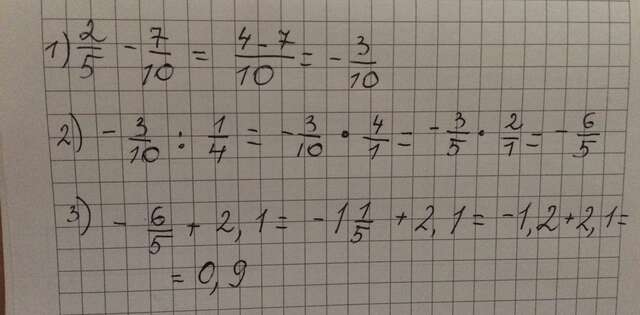 1) 2/5 - 7/10 = (4-7)/10 = - 3/10
2) - 3/10 : 1/4 = - 3/10 • 4/1 = - 3/5 • 2/1 = - 6/5
3) - 6/5 + 2,1 = -1 1/5 + 2,1 = -1,2+2,1=
= 0,9